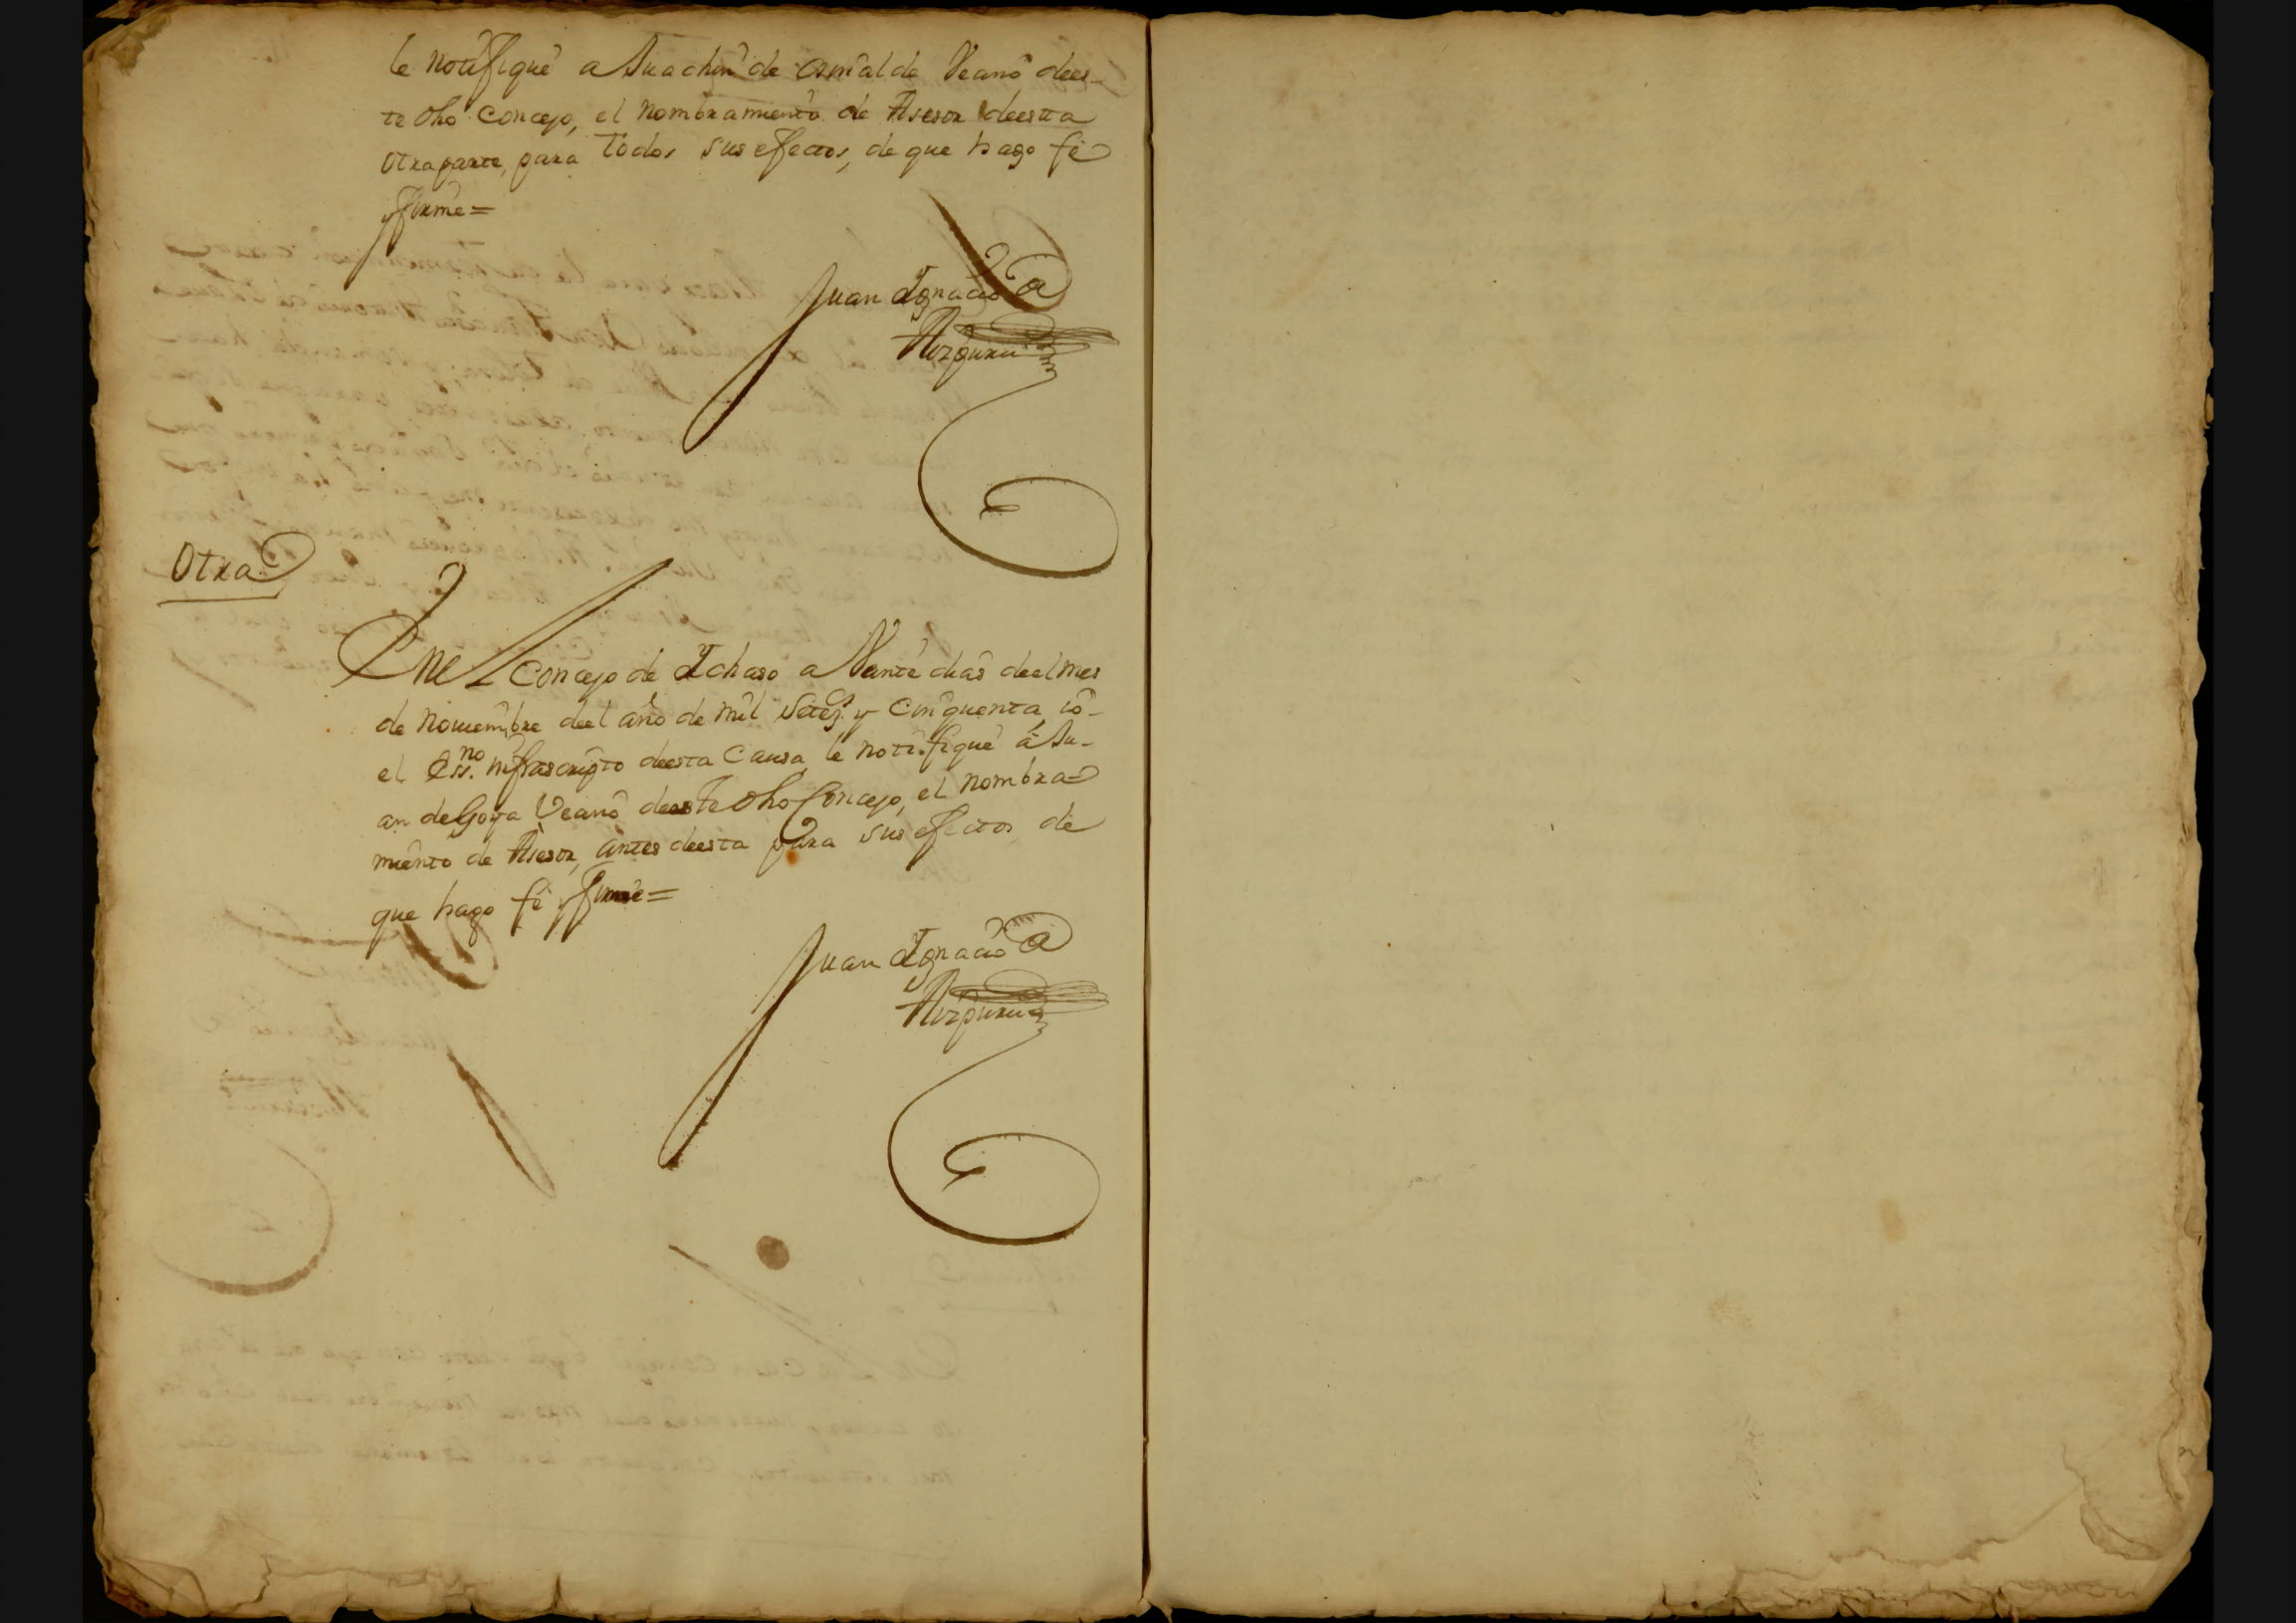 le notifiqué a Juachin de Arnialde Veano dees-
te dho Concejo, el nombramiento de Asesor deesta
otra parte, para todos sus efectos, de que hago fé
y firmé=
Juan Ignacio
Aizpuru
Otra
En el Concejo de Ichaso a Veinte dias deel mes
de Nouiembre deel año de mil setez.s y cinquenta, io
el ess.no infrascripto deesta Causa le notifiqué á Ju-
an de Goya Veano deeste dho Concejo, el nombra-
miento de Asesor, antes deesta para sus efectos, de
que hago fé y firmé=
Juan Ignacio
Aizpuru